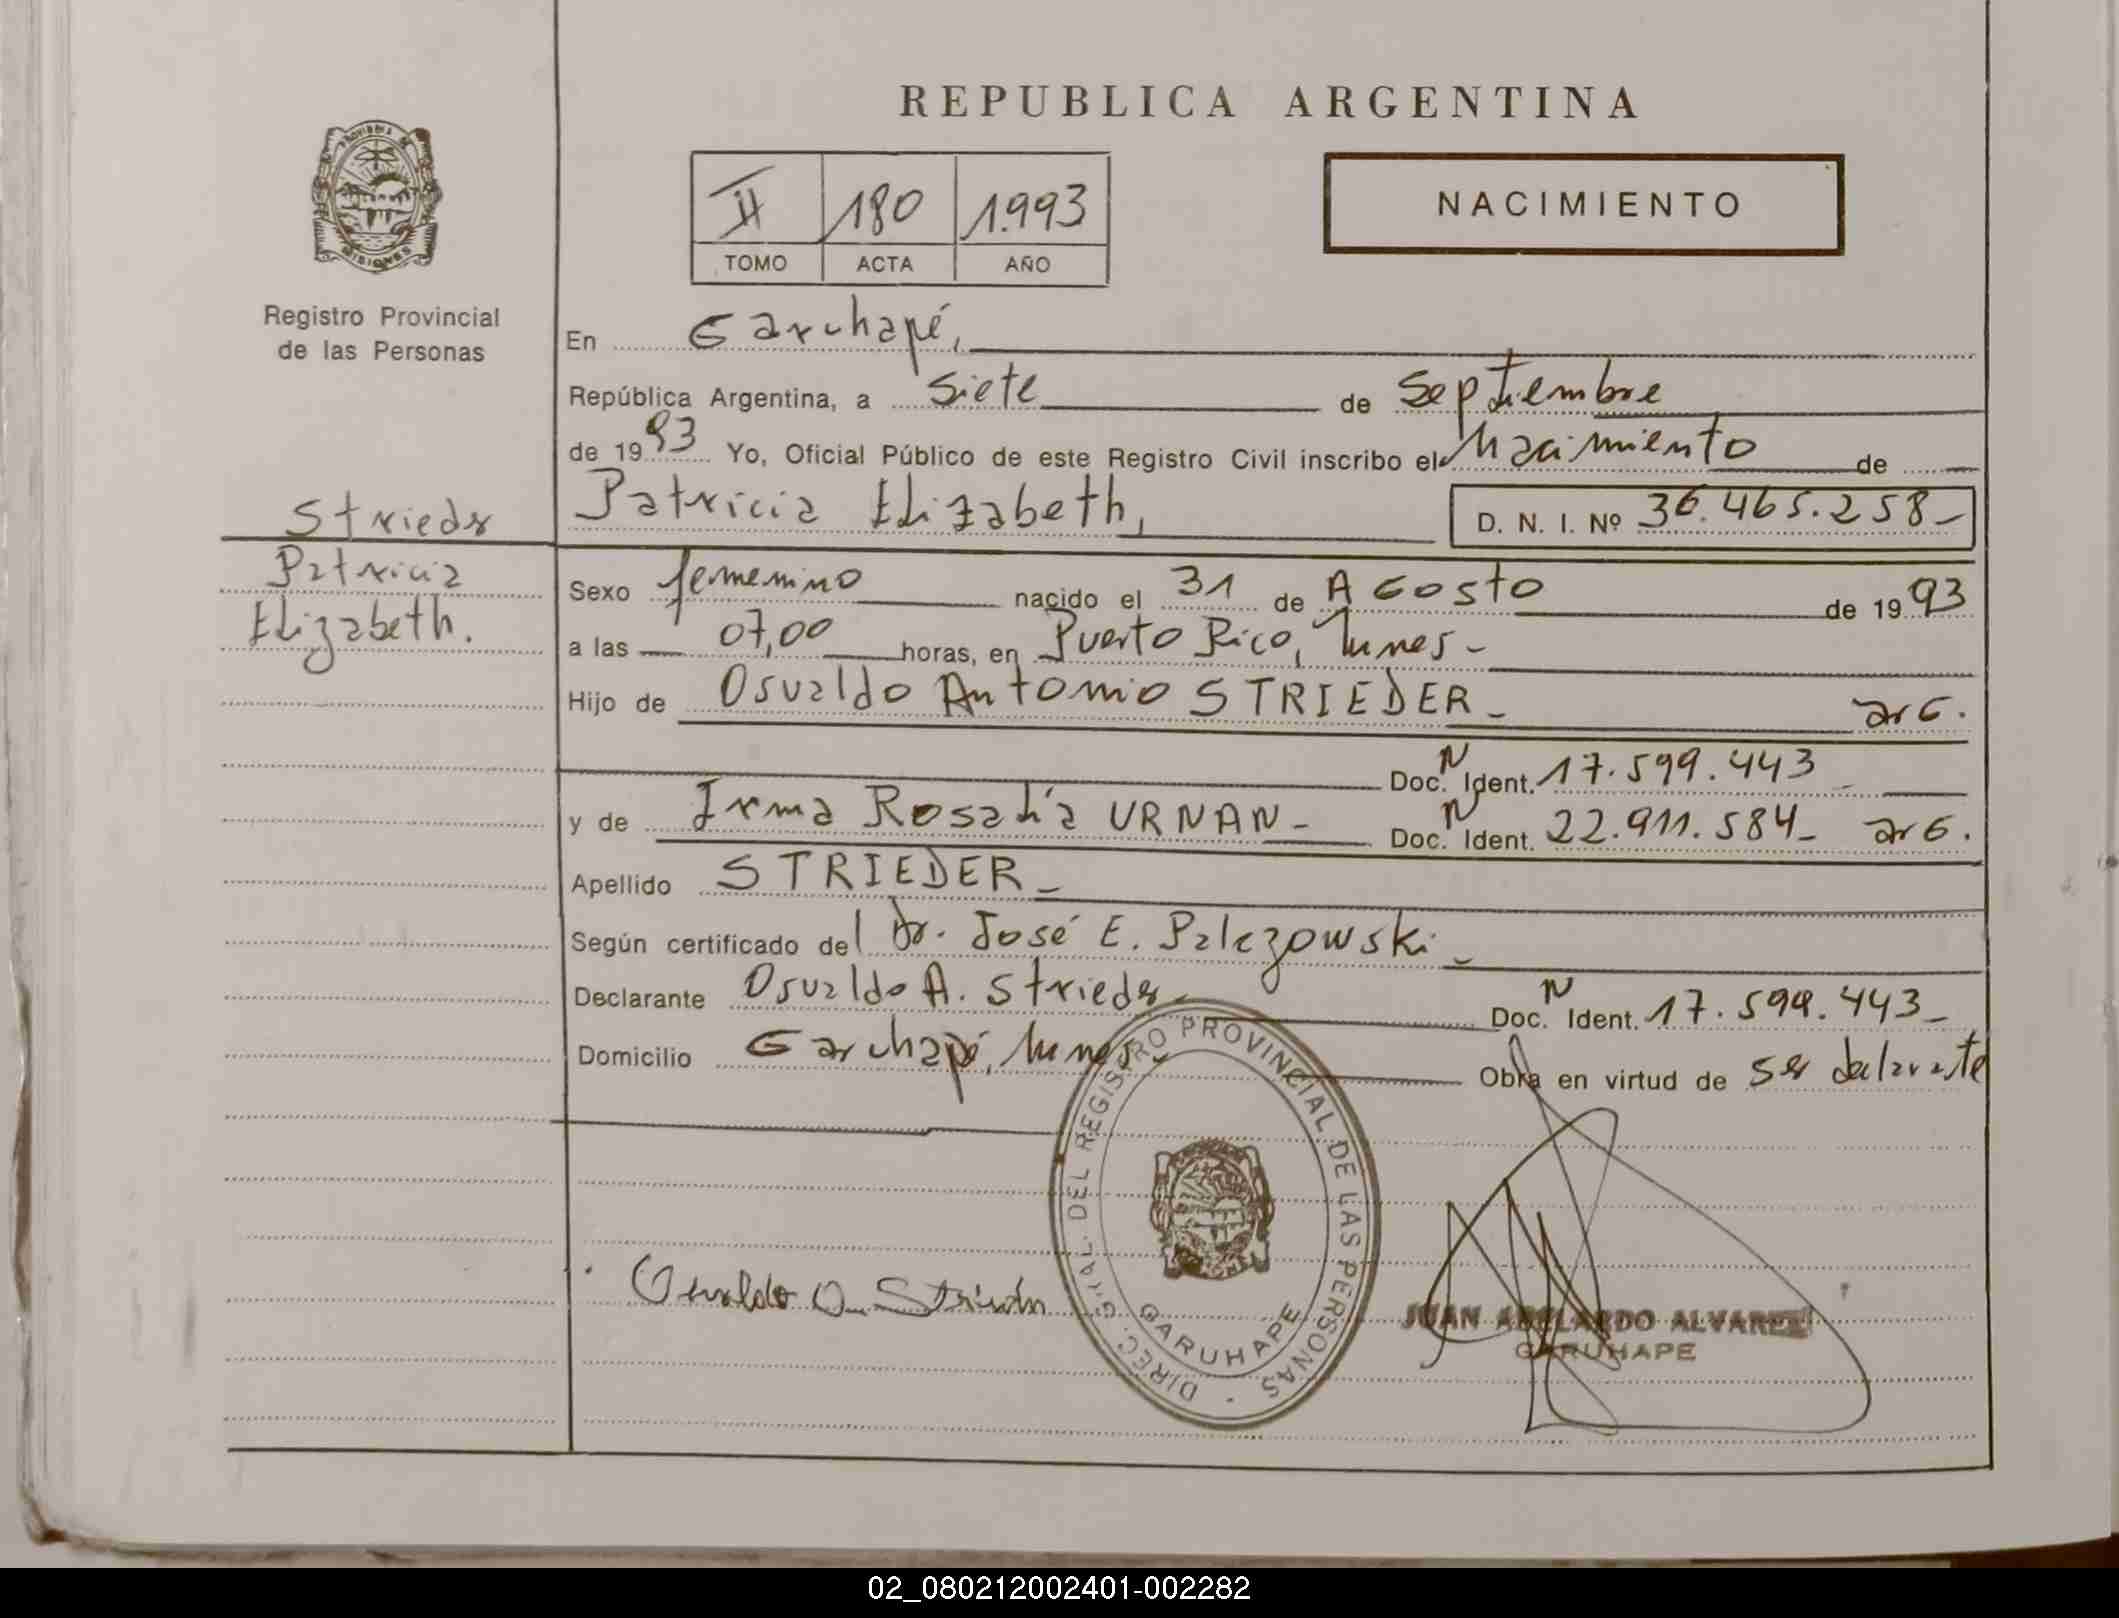 REPUBLICA ARGENTINA
PROVINCIA
MISIONES
Registro Provincial
de las Personas
II 180 1.993
TOMO ACTA AÑO
NACIMIENTO
En Garuhapé,
República Argentina, a siete de septiembre
de 1993 Yo, Oficial Público de este Registro Civil inscribo el Nacimiento de
Patricia Elizabeth,
D. N. I. Nº 36.465.258-
Strieder
Patricia
Elizabeth.
Sexo femenino nacido el 31 de AGosto de 1993
a las 07,00 horas, en Puerto Rico, Mnes-
Hijo de Osvaldo Antonio STRIEDER- arG.
Doc. N Ident. 17.599.443
y de Irma Rosalía URNAN- Doc. N Ident. 22.911.584- arG.
Apellido STRIEDER-
Según certificado del Dr. José E. Palczowski-
Declarante Osvaldo A. Strieder- Doc. N Ident. 17.599.443-
Domicilio Garuhapé, Mnes- Obra en virtud de ser declarante
DIREC. GRAL. DEL REGISTRO PROVINCIAL DE LAS PERSONAS
GARUHAPE
Osvaldo A. Strieder
JUAN ABELARDO ALVAREZ
GARUHAPE
02_080212002401-002282